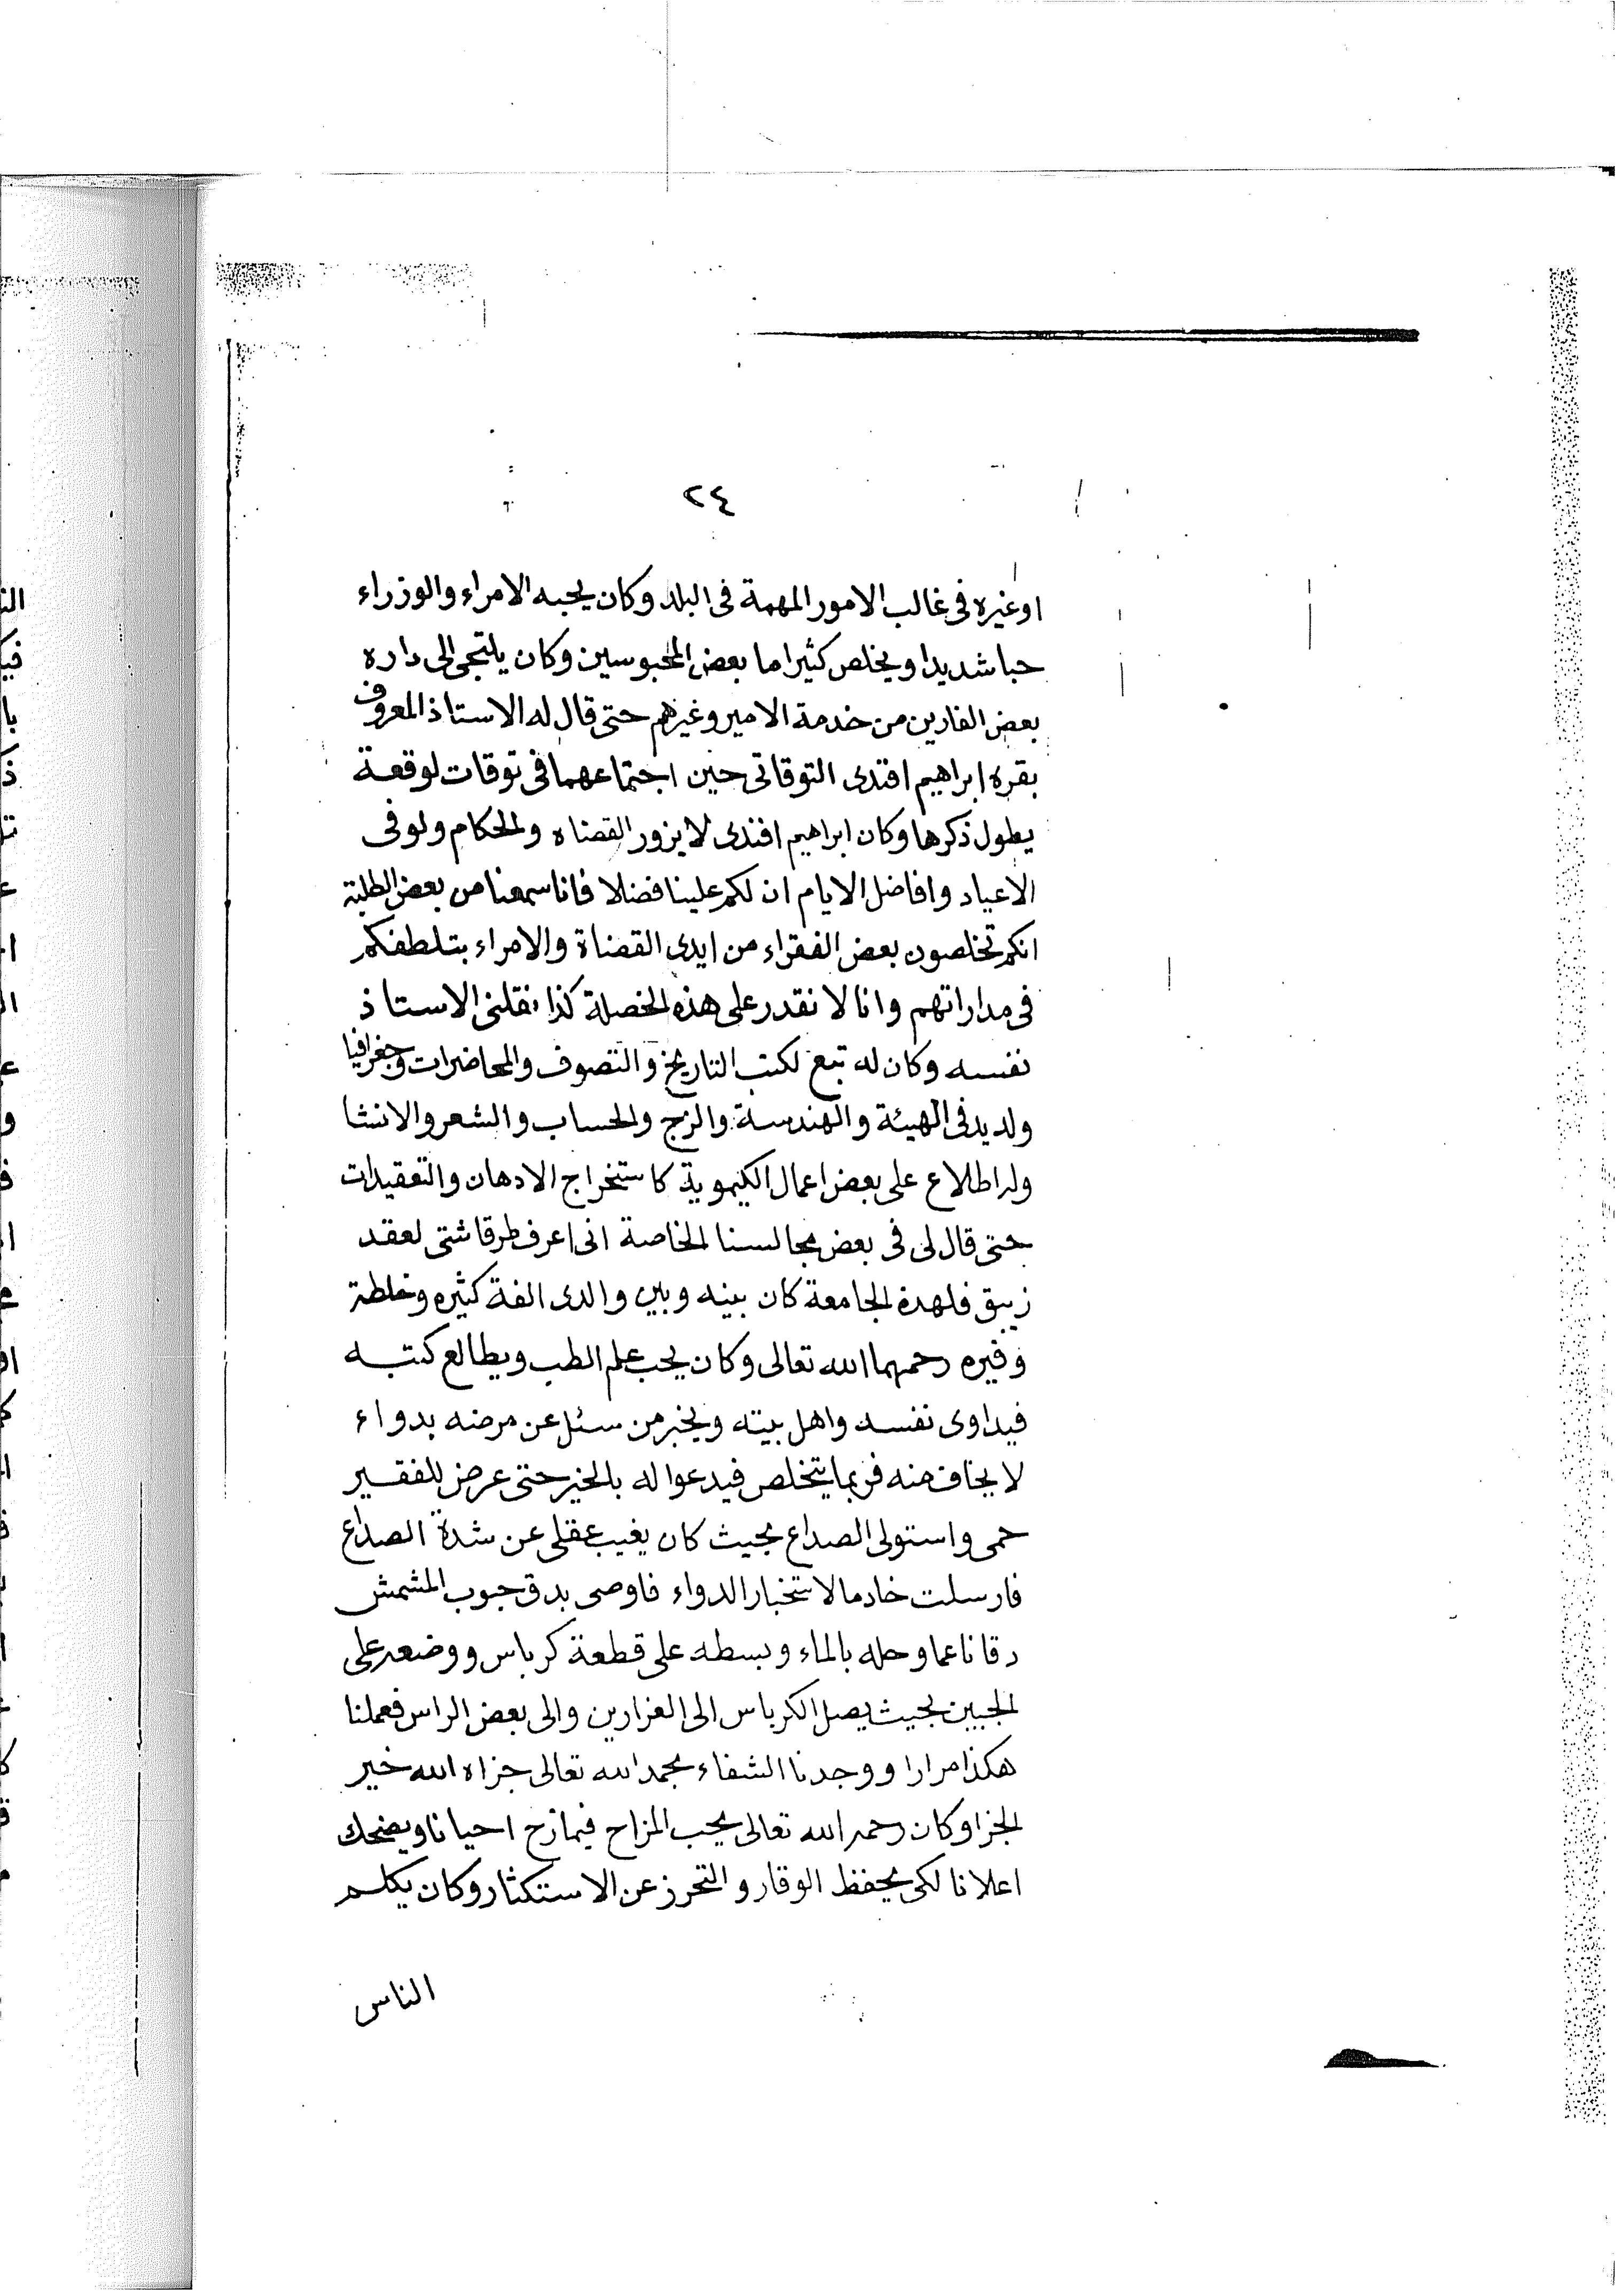 ٢٤
اوغيره فى غالب الامور المهمة فى البلد وكان يحبه الامراء والوزراء
حبا شديدا ويخلص كثيرا ما بعض المحبوسين وكان يلتجى الى داره
بعض الفارين من خدمة الامير وغيرهم حتى قال له الاستاذ المعروف
بقره ابراهيم افندى التوقاتى حين اجتماعهما فى توقات لوقعة
يطول ذكرها وكان ابراهيم افندى لا يزور القضاه والحكام ولو فى
الاعياد وافاضل الايام ان لكم علينا فضلا فانا سمعنا من بعض الطلبة
انكم تخلصون بعض الفقراء من ايدى القضاة والامراء بتلطفكم
فى مداراتهم وانا لا نقدر على هذه الخصلة كذا نقلنى الاستاذ
نفسه وكان له تبع لكتب التاريخ والتصوف والمحاضرات وجغرافيا
وله يد فى الهيئة والهندسة والزيج والحساب والشعر والانشا
وله اطلاع على بعض اعمال الكيموية كاستخراج الادهان والتعقيدات
حتى قال لى فى بعض مجالسنا الخاصة انى اعرف طرقا شتى لعقد
زيبق فلهذه الجامعة كان بينه وبين والدى الفة كثيره وخلطة
وفيره رحمهما الله تعالى وكان يحب علم الطب ويطالع كتبه
فيداوى نفسه واهل بيته ويخبر من سئل عن مرضه بدواء
لا يخاف منه فربما يتخلص فيدعوا له بالخير حتى عرض للفقير
حمى واستولى الصداع بحيث كان يغيب عقلى عن شدة الصداع
فارسلت خادما لاستخبار الدواء فاوصى بدق حبوب المشمش
دقا ناعما وحله بالماء وبسطه على قطعة كرباس ووضعه على
الجبين بحيث يصل الكرباس الى العزارين والى بعض الراس فعملنا
هكذا مرارا ووجدنا الشفاء بحمد الله تعالى جزاه الله خير
الجزا وكان رحمه الله تعالى يحب المزاح فيمازح احيانا ويضحك
اعلانا لكى يحفظ الوقار والتحرز عن الاستكثار وكان يكلم
الناس